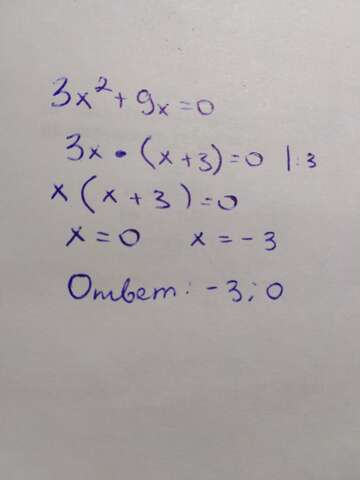 3x²+9x=0
3x•(x+3)=0 |:3
x(x+3)=0
x=0 x=-3
Ответ: -3;0